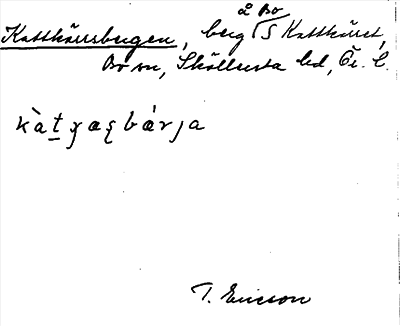 å Bo
Katthärsbergen, berg S Katthäret,
Bo sn, Sköllersta hd, Ör. l.
kàtxæsbǽrja
T. Ericson